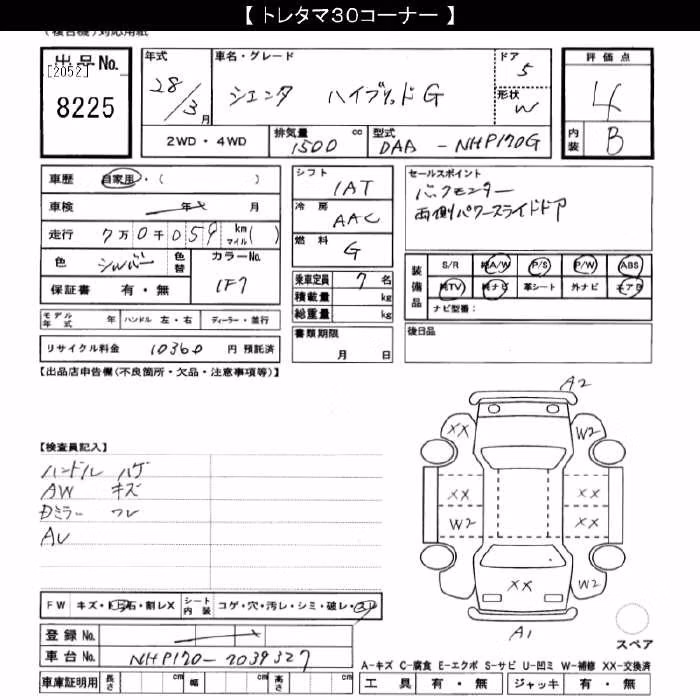 【 トレタマ30コーナー 】
(複合機)対応用紙
出品No.
[2052]
8225
年式
28/3月
車名・グレード
シエンタ ハイブリッドG
ドア
5
形状
W
評価点
4
内装
B
2WD・4WD
排気量 1500 cc
型式 DAA - NHP170G
車歴 自家用・( )
車検 年 月
走行 7万0千059 km マイル( )
色 シルバー 色替
カラーNo. 1F7
保証書 有・無
シフト
IAT
冷房
AAC
燃料
G
乗車定員 7名
積載量 kg
総重量 kg
セールスポイント
バックモニター
両側パワースライドドア
装備品
S/R 純A/W P/S P/W ABS
純TV 純ナビ 革シート 外ナビ エアB
ナビ型番:
モデル年式 年 ハンドル 左・右 ディーラー・並行
リサイクル料金 10360 円 預託済
書類期限
月 日
後日品
【出品店申告欄(不良箇所・欠品・注意事項等)】
A2
XX W2
XX XX
W2 XX
XX W2
A1
スペア
【検査員記入】
ハンドル ハゲ
AW キズ
Dミラー ワレ
AU
FW キズ・トビ石・割レX シート内装 コゲ・穴・汚レ・シミ・破レ・スレ
登録No.
車台No. NHP170-2039327
車庫証明用 長さ cm 幅 cm 高さ cm
A-キズ C-腐食 E-エクボ S-サビ U-凹ミ W-補修 XX-交換済
工具 有・無 ジャッキ 有・無